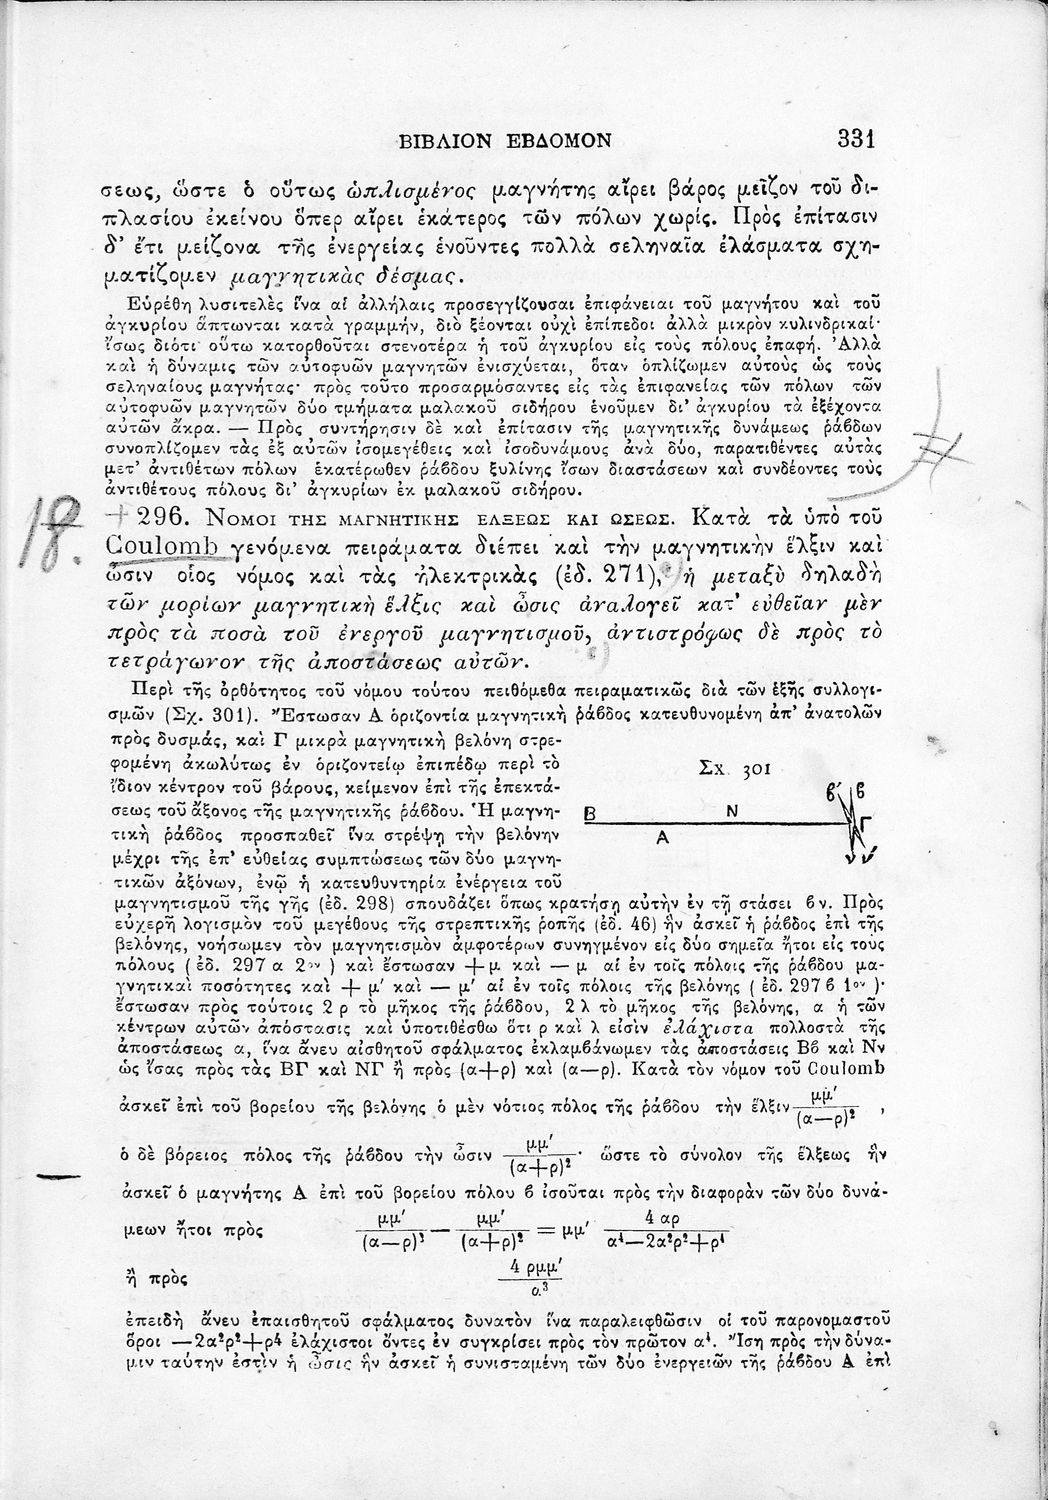 ΒΙΒΛΙΟΝ ΕΒΔΟΜΟΝ 331
σεως, ὥστε ὁ οὕτως ὡπλισμένος μαγνήτης αἴρει βάρος μεῖζον τοῦ δι-
πλασίου ἐκείνου ὅπερ αἴρει ἑκάτερος τῶν πόλων χωρίς. Πρὸς ἐπίτασιν
δ’ ἔτι μείζονα τῆς ἐνεργείας ἑνοῦντες πολλὰ σεληναῖα ἐλάσματα σχη-
ματίζομεν μαγνητικὰς δέσμας.
Εὑρέθη λυσιτελὲς ἵνα αἱ ἀλλήλαις προσεγγίζουσαι ἐπιφάνειαι τοῦ μαγνήτου καὶ τοῦ
ἀγκυρίου ἅπτωνται κατὰ γραμμήν, διὸ ξέονται οὐχὶ ἐπίπεδοι ἀλλὰ μικρὸν κυλινδρικαί·
ἴσως διότι οὕτω κατορθοῦται στενοτέρα ἡ τοῦ ἀγκυρίου εἰς τοὺς πόλους ἐπαφή. Ἀλλὰ
καὶ ἡ δύναμις τῶν αὐτοφυῶν μαγνητῶν ἐνισχύεται, ὅταν ὁπλίζωμεν αὐτοὺς ὡς τοὺς
σεληναίους μαγνήτας· πρὸς τοῦτο προσαρμόσαντες εἰς τὰς ἐπιφανείας τῶν πόλων τῶν
αὐτοφυῶν μαγνητῶν δύο τμήματα μαλακοῦ σιδήρου ἑνοῦμεν δι’ ἀγκυρίου τὰ ἐξέχοντα
αὐτῶν ἄκρα. — Πρὸς συντήρησιν δὲ καὶ ἐπίτασιν τῆς μαγνητικῆς δυνάμεως ῥάβδων
συνοπλίζομεν τὰς ἐξ αὐτῶν ἰσομεγέθεις καὶ ἰσοδυνάμους ἀνὰ δύο, παρατιθέντες αὐτὰς
μετ’ ἀντιθέτων πόλων ἑκατέρωθεν ῥάβδου ξυλίνης ἴσων διαστάσεων καὶ συνδέοντες τοὺς
ἀντιθέτους πόλους δι’ ἀγκυρίων ἐκ μαλακοῦ σιδήρου.
18. + 296. ΝΟΜΟΙ ΤΗΣ ΜΑΓΝΗΤΙΚΗΣ ΕΛΞΕΩΣ ΚΑΙ ΩΣΕΩΣ. Κατὰ τὰ ὑπὸ τοῦ
Coulomb γενόμενα πειράματα διέπει καὶ τὴν μαγνητικὴν ἕλξιν καὶ
ὦσιν οἷος νόμος καὶ τὰς ἠλεκτρικὰς (ἐδ. 271), ἡ μεταξὺ δηλαδὴ
τῶν μορίων μαγνητικὴ ἕλξις καὶ ὦσις ἀναλογεῖ κατ’ εὐθεῖαν μὲν
πρὸς τὰ ποσὰ τοῦ ἐνεργοῦ μαγνητισμοῦ, ἀντιστρόφως δὲ πρὸς τὸ
τετράγωνον τῆς ἀποστάσεως αὐτῶν.
Περὶ τῆς ὀρθότητος τοῦ νόμου τούτου πειθόμεθα πειραματικῶς διὰ τῶν ἑξῆς συλλογι-
σμῶν (Σχ. 301). Ἔστωσαν Α ὁριζοντία μαγνητικὴ ῥάβδος κατευθυνομένη ἀπ’ ἀνατολῶν
πρὸς δυσμάς, καὶ Γ μικρὰ μαγνητικὴ βελόνη στρε-
φομένη ἀκωλύτως ἐν ὁριζοντείῳ ἐπιπέδῳ περὶ τὸ
ἴδιον κέντρον τοῦ βάρους, κείμενον ἐπὶ τῆς ἐπεκτά-
σεως τοῦ ἄξονος τῆς μαγνητικῆς ῥάβδου. Ἡ μαγνη-
τικὴ ῥάβδος προσπαθεῖ ἵνα στρέψῃ τὴν βελόνην
μέχρι τῆς ἐπ’ εὐθείας συμπτώσεως τῶν δύο μαγνη-
τικῶν ἀξόνων, ἐνῷ ἡ κατευθυντηρία ἐνέργεια τοῦ
Σχ. 301
Β Ν Α ϐ′ ϐ Γ ν ν′
μαγνητισμοῦ τῆς γῆς (ἐδ. 298) σπουδάζει ὅπως κρατήσῃ αὐτὴν ἐν τῇ στάσει ϐν. Πρὸς
εὐχερῆ λογισμὸν τοῦ μεγέθους τῆς στρεπτικῆς ῥοπῆς (ἐδ. 46) ἣν ἀσκεῖ ἡ ῥάβδος ἐπὶ τῆς
βελόνης, νοήσωμεν τὸν μαγνητισμὸν ἀμφοτέρων συνηγμένον εἰς δύο σημεῖα ἤτοι εἰς τοὺς
πόλους (ἐδ. 297 α 2ον) καὶ ἔστωσαν +μ καὶ —μ αἱ ἐν τοῖς πόλοις τῆς ῥάβδου μα-
γνητικαὶ ποσότητες καὶ +μ′ καὶ —μ′ αἱ ἐν τοῖς πόλοις τῆς βελόνης (ἐδ. 297 ϐ 1ον)·
ἔστωσαν πρὸς τούτοις 2ρ τὸ μῆκος τῆς ῥάβδου, 2λ τὸ μῆκος τῆς βελόνης, α ἡ τῶν
κέντρων αὐτῶν ἀπόστασις καὶ ὑποτιθέσθω ὅτι ρ καὶ λ εἰσὶν ἐλάχιστα πολλοστὰ τῆς
ἀποστάσεως α, ἵνα ἄνευ αἰσθητοῦ σφάλματος ἐκλαμβάνωμεν τὰς ἀποστάσεις Βϐ καὶ Νν
ὡς ἴσας πρὸς τὰς ΒΓ καὶ ΝΓ ἢ πρὸς (α+ρ) καὶ (α—ρ). Κατὰ τὸν νόμον τοῦ Coulomb
ἀσκεῖ ἐπὶ τοῦ βορείου τῆς βελόνης ὁ μὲν νότιος πόλος τῆς ῥάβδου τὴν ἕλξιν μμ′/(α—ρ)² ,
ὁ δὲ βόρειος πόλος τῆς ῥάβδου τὴν ὦσιν μμ′/(α+ρ)² · ὥστε τὸ σύνολον τῆς ἕλξεως ἣν
ἀσκεῖ ὁ μαγνήτης Α ἐπὶ τοῦ βορείου πόλου ϐ ἰσοῦται πρὸς τὴν διαφορὰν τῶν δύο δυνά-
μεων ἤτοι πρὸς μμ′/(α—ρ)² — μμ′/(α+ρ)² = μμ′ 4αρ/α⁴—2α²ρ²+ρ⁴
ἢ πρὸς 4ρμμ′/α³
ἐπειδὴ ἄνευ ἐπαισθητοῦ σφάλματος δυνατὸν ἵνα παραλειφθῶσιν οἱ τοῦ παρονομαστοῦ
ὅροι —2α²ρ²+ρ4 ἐλάχιστοι ὄντες ἐν συγκρίσει πρὸς τὸν πρῶτον α⁴. Ἴση πρὸς τὴν δύνα-
μιν ταύτην ἐστὶν ἡ ὦσις ἣν ἀσκεῖ ἡ συνισταμένη τῶν δύο ἐνεργειῶν τῆς ῥάβδου Α ἐπὶ